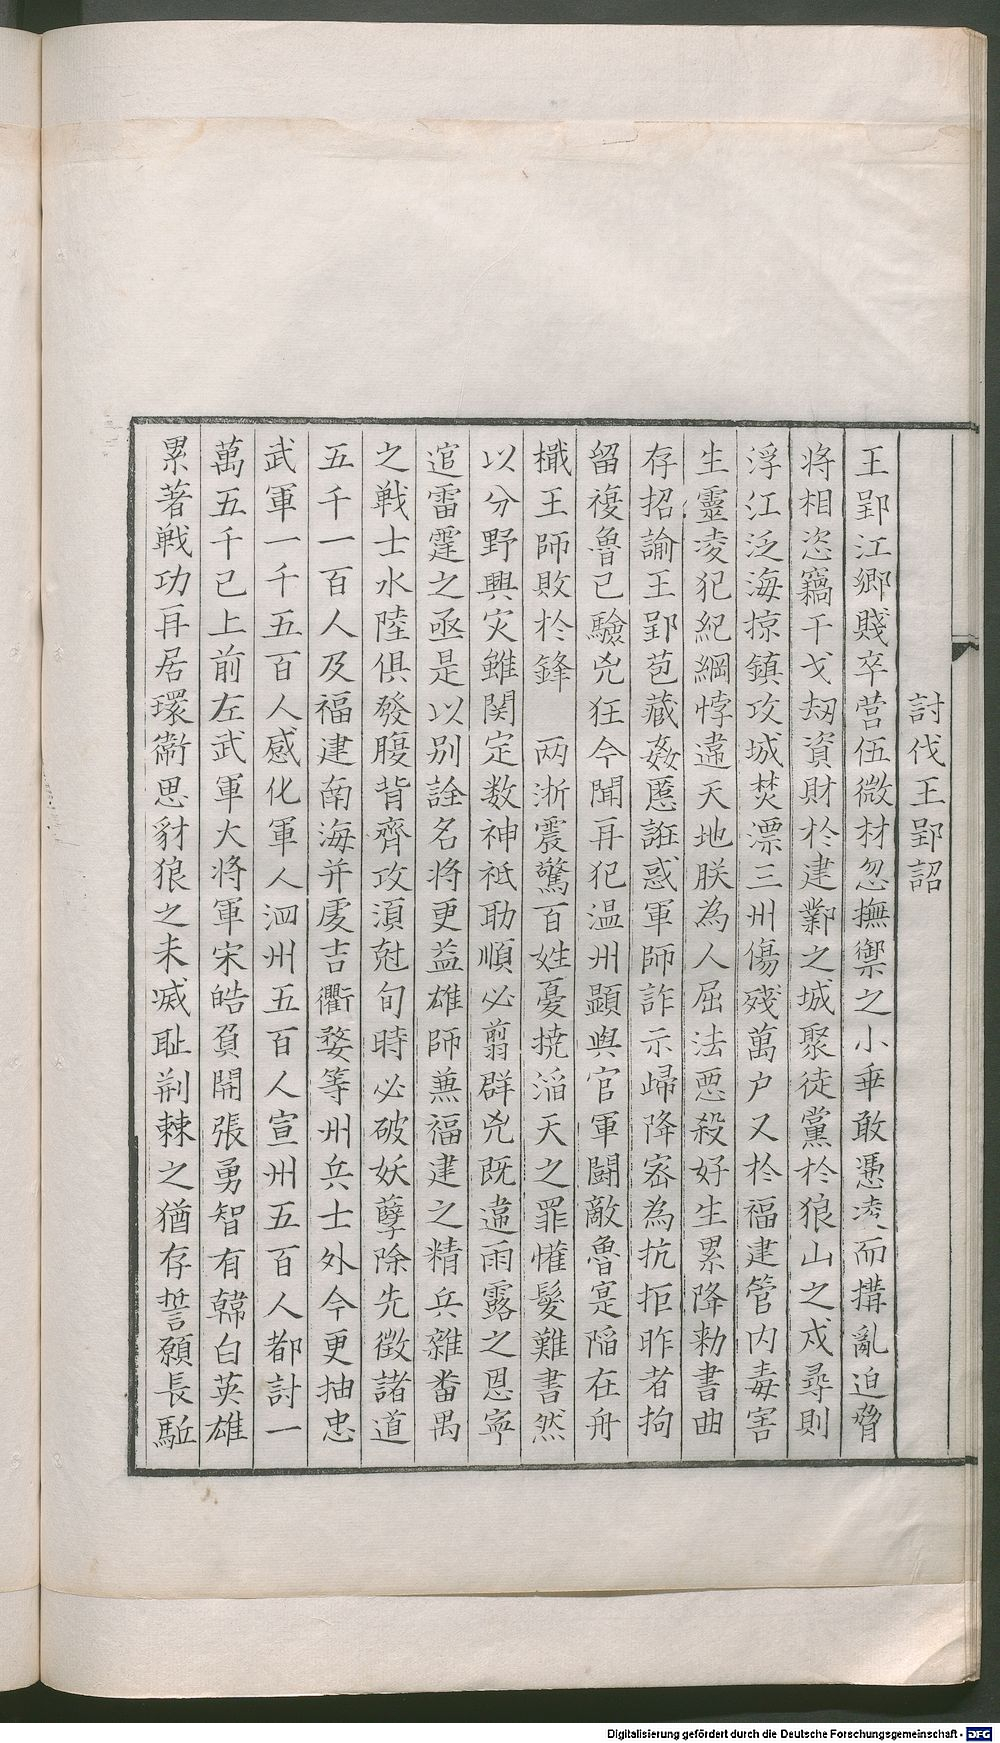 討伐王郢詔
王郢江鄉賤卒營伍微材忽撫禦之小乖敢憑凌而搆亂迫脅
將相恣竊干戈刼資財於建鄴之城聚徒黨於狼山之戍尋則
浮江泛海掠鎮攻城焚漂三州傷殘萬户又於福建管内毒害
生靈凌犯紀綱悖違天地朕為人屈法惡殺好生累降勑書曲
存招諭王郢苞藏姦慝誑惑軍師詐示歸降宻為抗拒昨者拘
留複魯已驗兇狂今聞再犯温州顯與官軍鬪敵魯寔陷在舟
檝王師敗於鋒 两浙震驚百姓憂撓滔天之罪慛髮難書然
以分野興灾雖関定数神祇助順必翦群兇既違雨露之恩寜
逭雷霆之亟是以别詮名将更益雄師兼福建之精兵雜畨禺
之戰士水陸俱發腹背齊攻湏尅旬時必破妖孽除先徵諸道
五千一百人及福建南海并䖏吉衢婺等州兵士外今更抽忠
武軍一千五百人感化軍人泗州五百人宣州五百人都討一
萬五千已上前左武軍大將軍宋皓負開張勇智有韓白英雄
累著戰功再居環衞思豺狼之未滅耻荆棘之猶存誓願長駈